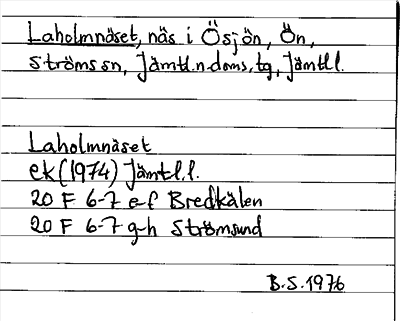 Laholmnäset, näs i Ösjön, Ön,
Ströms sn, Jämtl.n.doms.tg, Jämtl l.
Laholmnäset
ek (1974) Jämtl.l.
20 F 6-7 e-f Bredkälen
20 F 6-7 g-h Strömsund
B.S. 1976